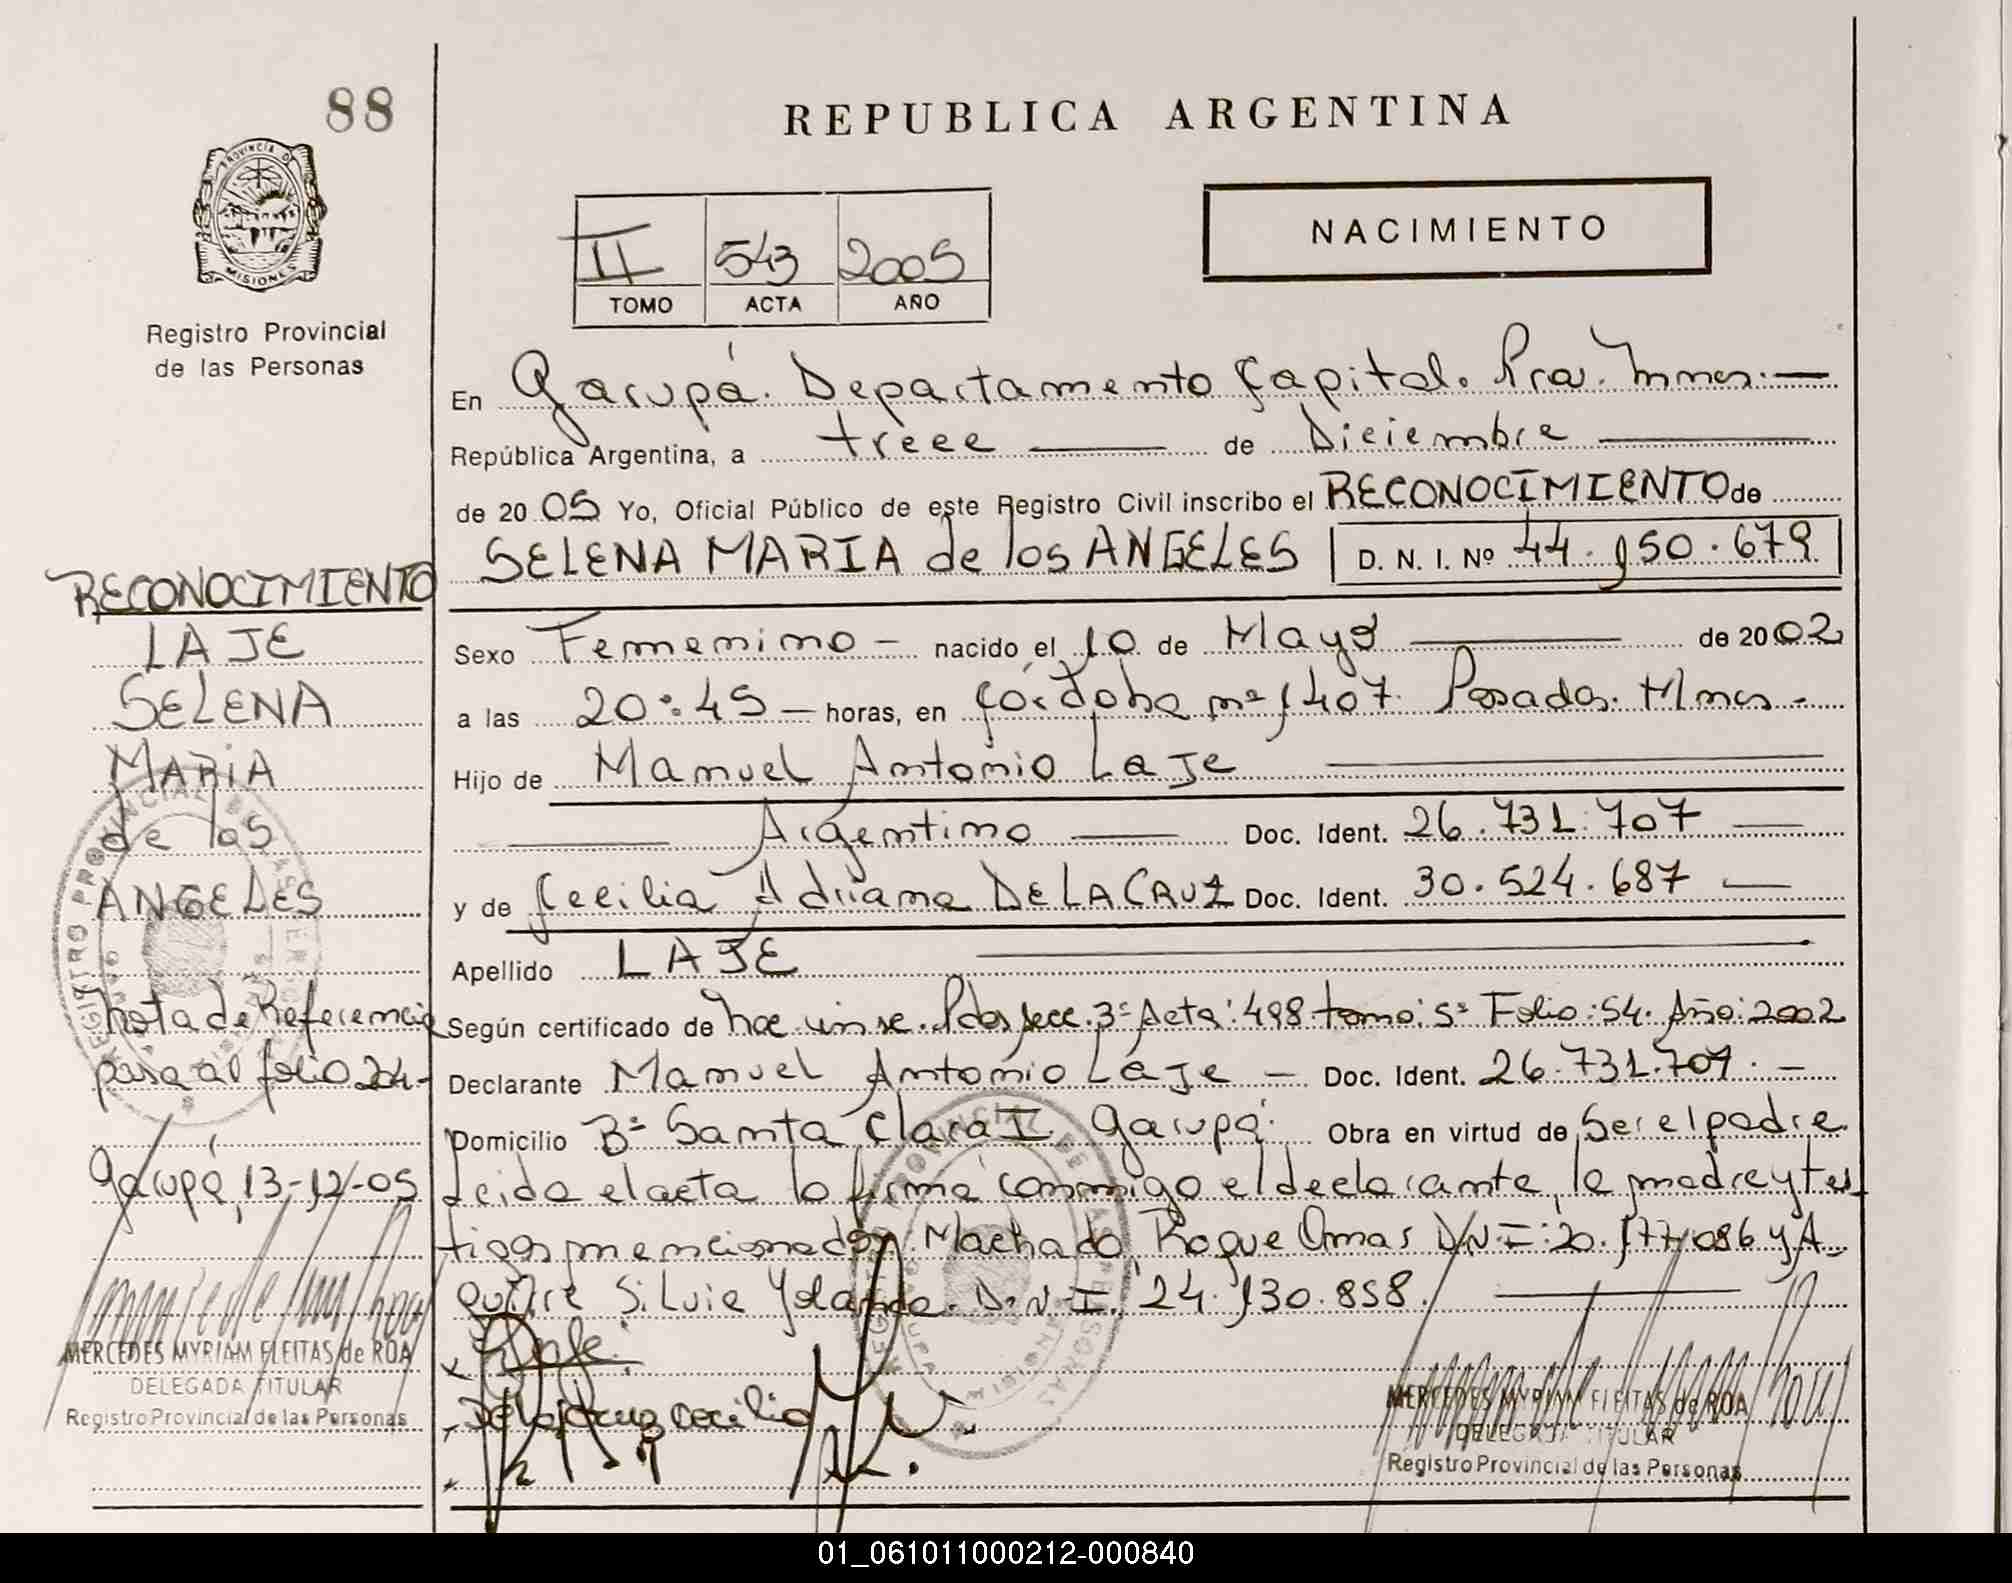 88
REPUBLICA ARGENTINA
PROVINCIA DE
MISIONES
Registro Provincial
de las Personas
II 543 2005
TOMO ACTA AÑO
NACIMIENTO
En Garupá. Departamento Capital. Pcia. Mnes.
República Argentina, a trece de Diciembre
de 20 05 Yo, Oficial Público de este Registro Civil inscribo el RECONOCIMIENTO de
SELENA MARIA de los ANGELES D. N. I. Nº 44.150.679
Sexo Femenino - nacido el 10 de Mayo de 20 02
a las 20:45 - horas, en Córdoba nº 1407. Posadas. Mnes -
Hijo de Manuel Antonio LaJe
Argentino Doc. Ident. 26.731.707
y de Cecilia Adriana DE LA CRUZ Doc. Ident. 30.524.687
Apellido LAJE
Según certificado de Nac. Secc. 3ª Acta: 498 tomo: 5º Folio: 54. Año: 2002
Declarante Manuel Antonio LaJe - Doc. Ident. 26.731.707. -
Domicilio Bº Santa Clara I Garupá. Obra en virtud de Ser el padre
Leida el acta la firma conmigo el declarante, la madre y tes
tigos mencionados: Machado Roque Omar D.N.I: 20.177.086 y A
Silvia Yolanda. D.N.I. 24.130.858.
De la cruz Cecilia
MERCEDES MYRIAM FLEITAS de ROA
DELEGADA TITULAR
Registro Provincial de las Personas
RECONOCIMIENTO
LAJE
SELENA
MARIA
de los
ANGELES
Nota de Referencia
pasa al folio 204-
Garupá, 13-12-05
MERCEDES MYRIAM FLEITAS de ROA
DELEGADA TITULAR
Registro Provincial de las Personas
01_061011000212-000840